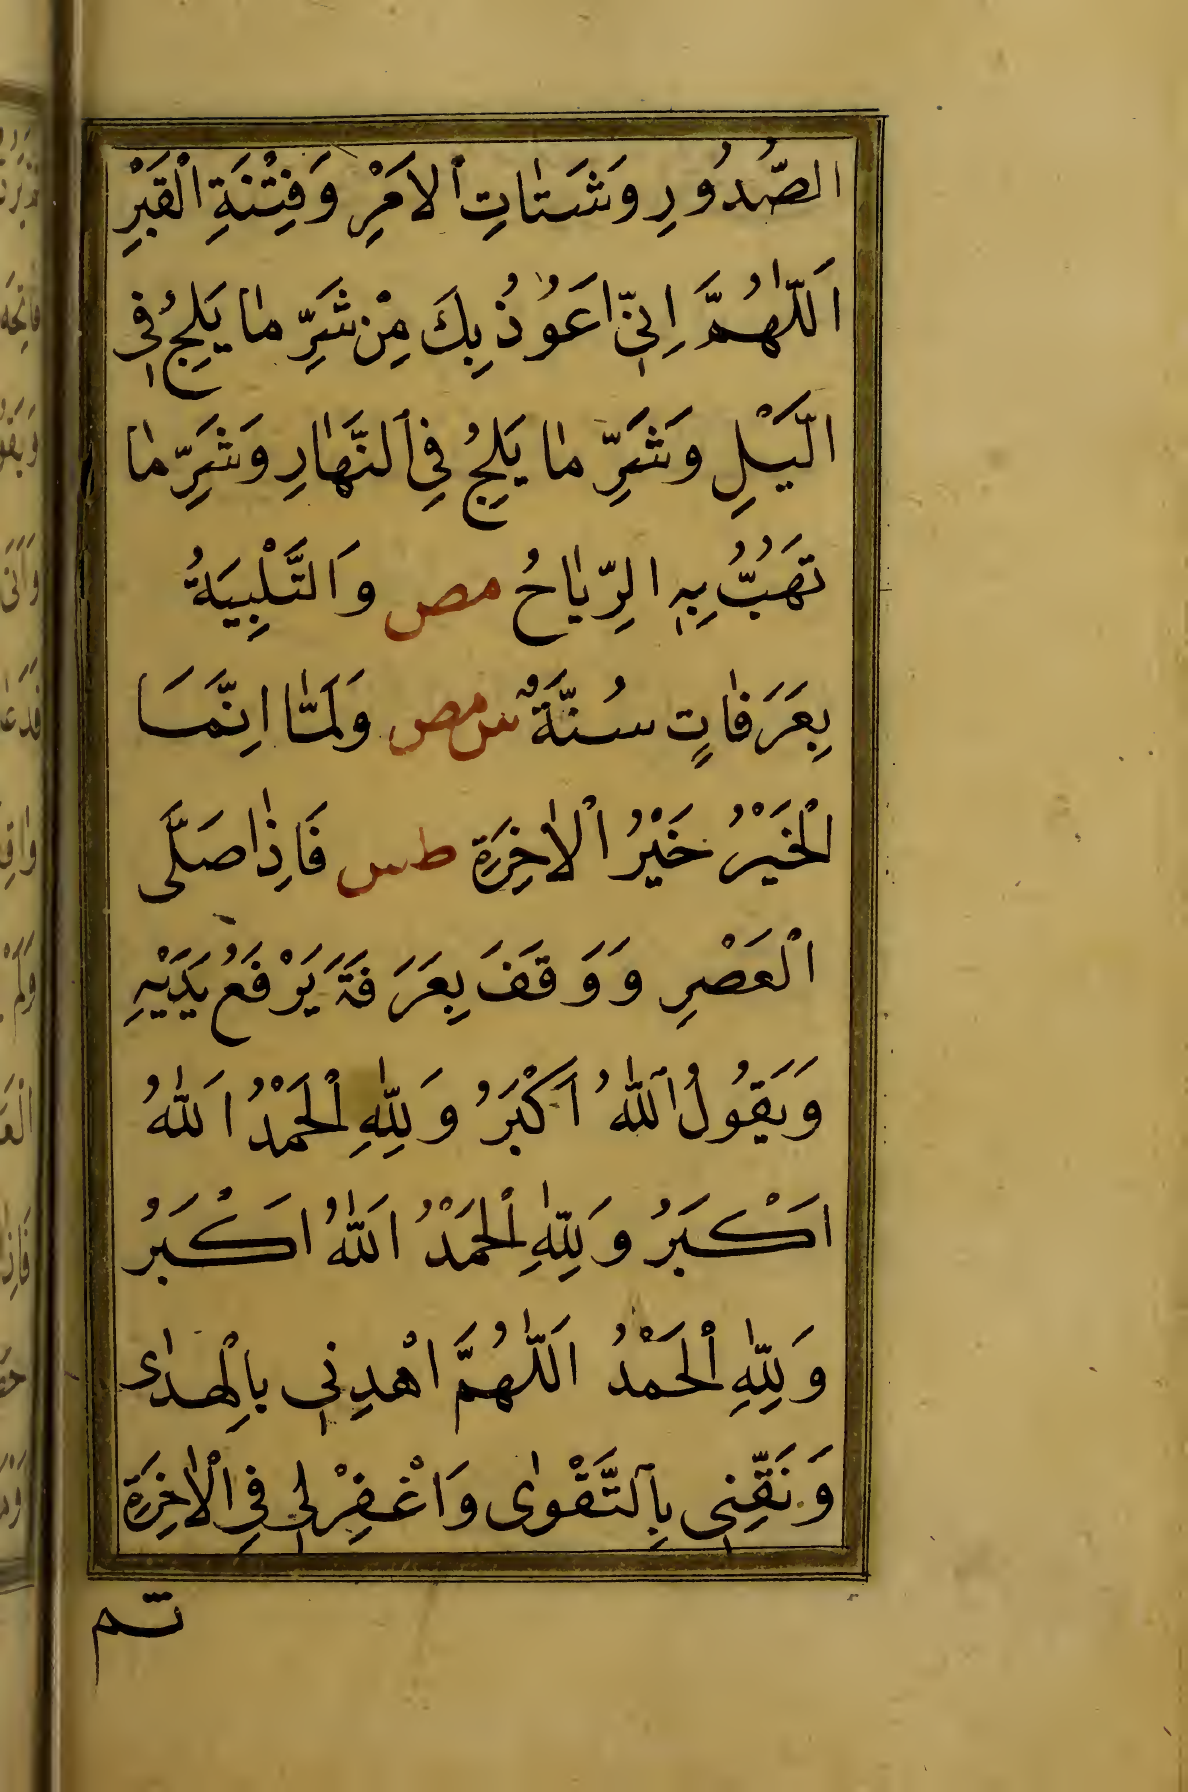 الصُّدُورِ وَشَتَاتِ الْاَمْرِ وَفِتْنَةِ الْقَبْرِ
اَللّٰهُمَّ اِنِّيٓ اَعُوذُ بِكَ مِنْ شَرِّ مَا يَلِجُ فِي
الَّيْلِ وَشَرِّ مَا يَلِجُ فِي النَّهَارِ وَشَرِّ مَا
تَهُبُّ بِهِ الرِّيَاحُ مص وَالتَّلْبِيَةُ
بِعَرَفَاتٍ سُنَّةٌ س مص وَلَمَّا اِنَّمَا
الْخَيْرُ خَيْرُ الْاٰخِرَةِ طس فَاِذَا صَلَّى
الْعَصْرِ وَوَقَفَ بِعَرَفَةَ يَرْفَعُ يَدَيْهِ
وَيَقُولُ اللّٰهُ اَكْبَرُ وَلِلّٰهِ الْحَمْدُ اَللّٰهُ
اَكْبَرُ وَلِلّٰهِ الْحَمْدُ اَللّٰهُ اَكْبَرُ
وَلِلّٰهِ الْحَمْدُ اَللّٰهُمَّ اهْدِنِي بِالْهُدٰى
وَنَقِّنِي بِالتَّقْوٰى وَاغْفِرْ لِي فِي الْاٰخِرَةِ
تم